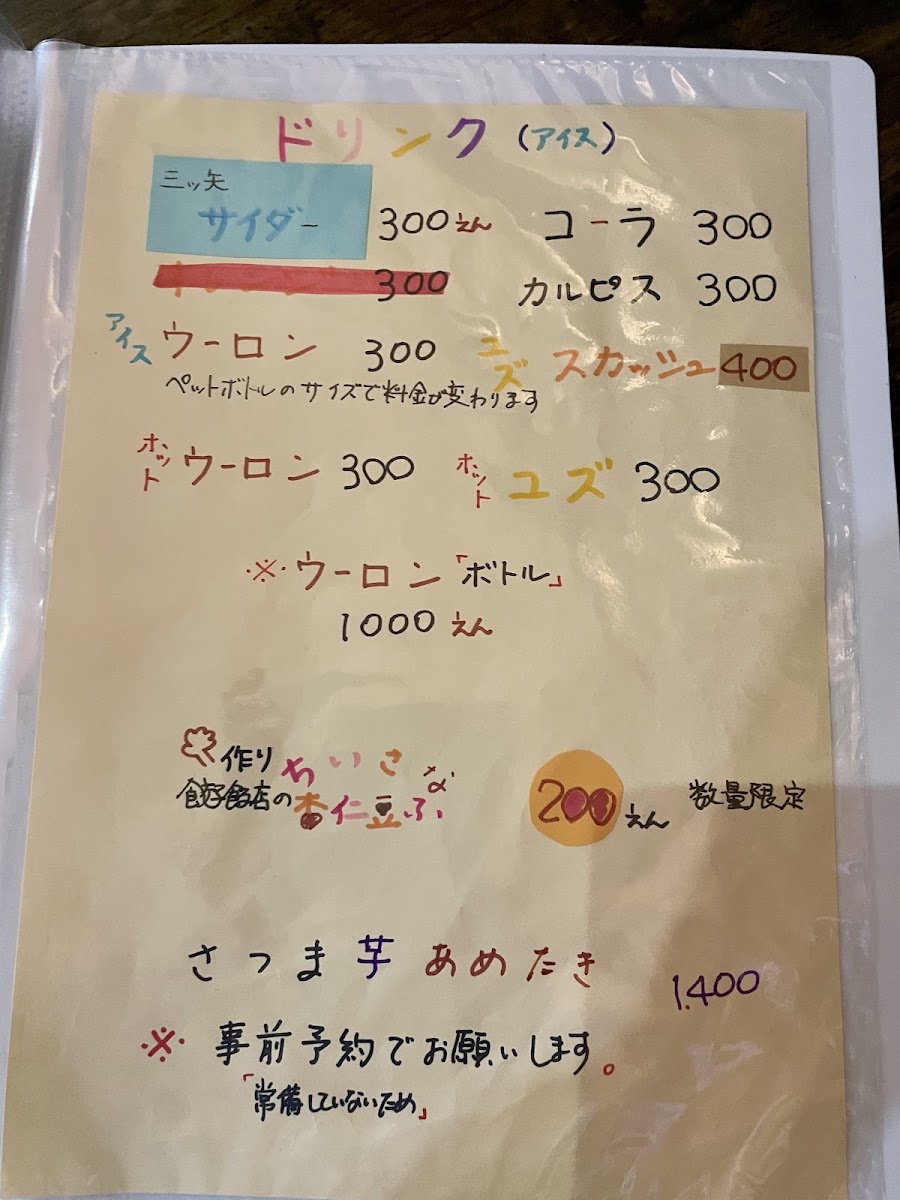 ドリンク (アイス)
三ッ矢
サイダー 300えん コーラ 300
300 カルピス 300
アイス ウーロン 300 ユズ スカッシュ 400
ペットボトルのサイズで料金が変わります
ホット ウーロン 300 ホット ユズ 300
※ ウーロン「ボトル」
1000えん
作り ちいさな
店の杏仁豆ふ 200えん 数量限定
さつま芋あめたき 1.400
※ 事前予約でお願いします。
「常備していないため」